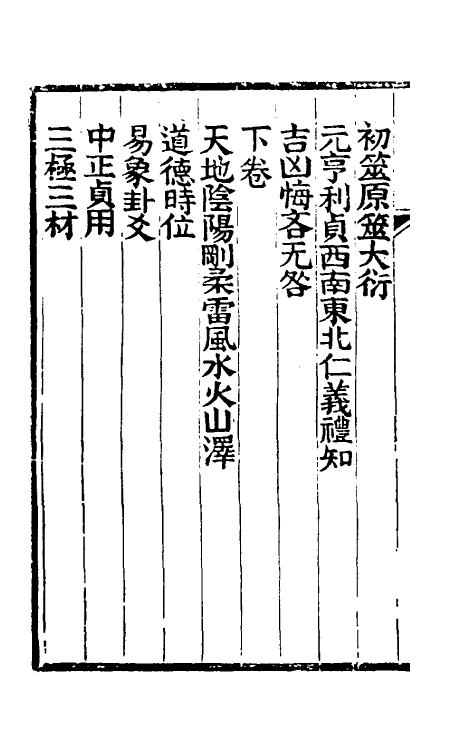 初筮原筮大衍
元亨利貞西南東北仁義禮知
吉凶悔吝无咎
下卷
天地陰陽剛柔雷風水火山澤
道德時位
易象卦爻
中正貞用
三極三材